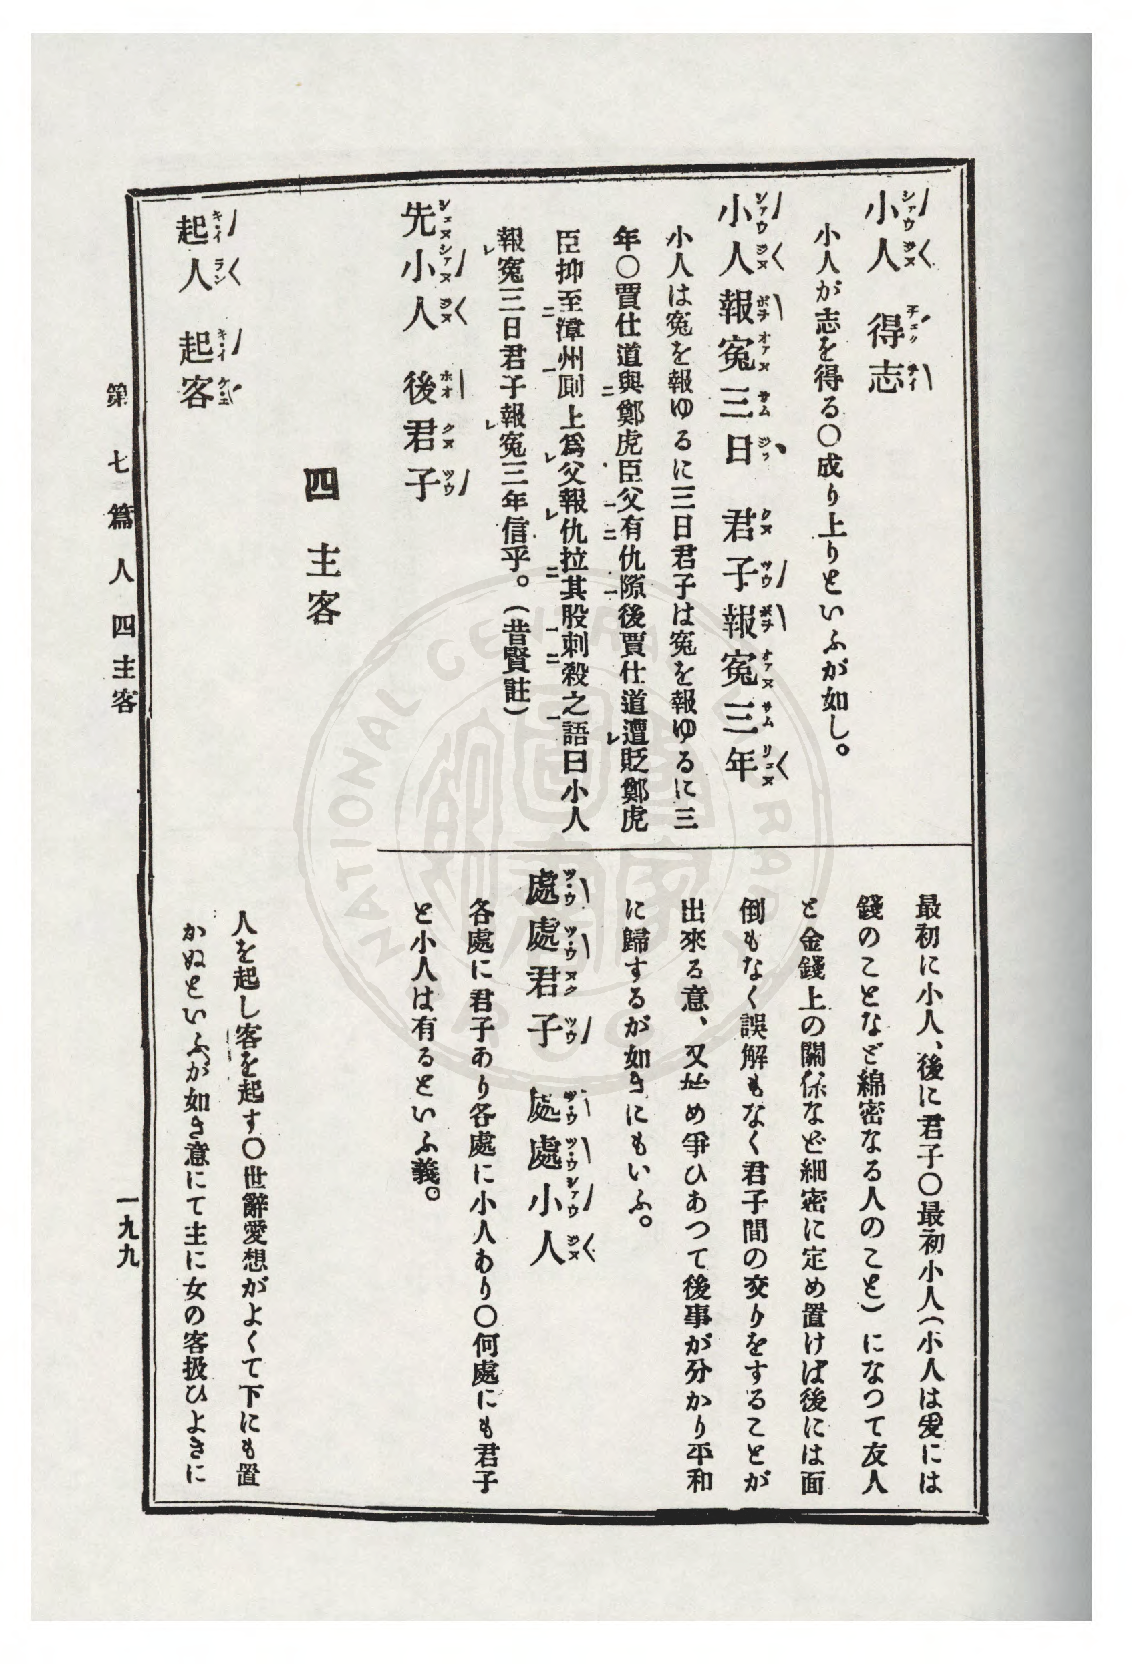 小人 得志
小人が志を得る〇成り上りといふが如し。
小人報寃三日 君子報寃三年
小人は寃を報ゆるに三日君子は寃を報ゆるに三
年〇賈仕道與鄭虎臣父有仇隙後賈仕道遭貶鄭虎
臣抑至漳州厠上爲父報仇拉其股刺殺之語曰小人
報寃三日君子報寃三年信乎。(昔賢註)
先小人 後君子
最初に小人、後に君子〇最初小人(小人は爰には
錢のことなど綿密なる人のこと)になつて友人
と金錢上の關係など細密に定め置けば後には面
倒もなく誤解もなく君子間の交りをすることが
出來る意、又始め爭ひあつて後事が分かり平和
に歸するが如きにもいふ。
處處君子 處處小人
各處に君子あり各處に小人あり〇何處にも君子
と小人は有るといふ義。
四 主客
起人 起客
人を起し客を起す〇世辭愛想がよくて下にも置
かぬといふが如き意にて主に女の客扱ひよきに
第七篇 人 四主客
一九九
NATIONAL CENTRAL LIBRARY